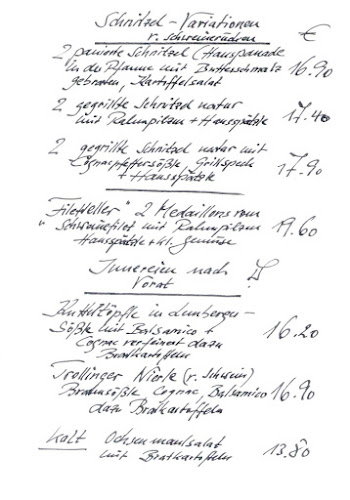 Schnitzel-Variationen
v. Schweinerücken €
2 panierte Schnitzel (Hauspanade
in der Pfanne mit Butterschmalz 16.90
gebraten, Kartoffelsalat
2 gegrillte Schnitzel natur
mit Rahmpilzen + Hausspätzle 17.40
2 gegrillte Schnitzel natur mit
Cognacpfeffersößle, Grillspeck 17.90
+ Hausspätzle
"Filetteller" 2 Medaillons vom
Schweinefilet mit Rahmpilzen 19.60
Hausspätzle + kl. Gemüse
Innereien nach
Vorrat
Kutteltöpfle in Lemberger-
Sößle mit Balsamico + 16.20
Cognac verfeinert dazu
Bratkartoffeln
Trollinger Nierle (v. Schwein)
Bratensößle Cognac Balsamico 16.90
dazu Bratkartoffeln
kalt Ochsenmaulsalat
mit Bratkartoffeln 13.80